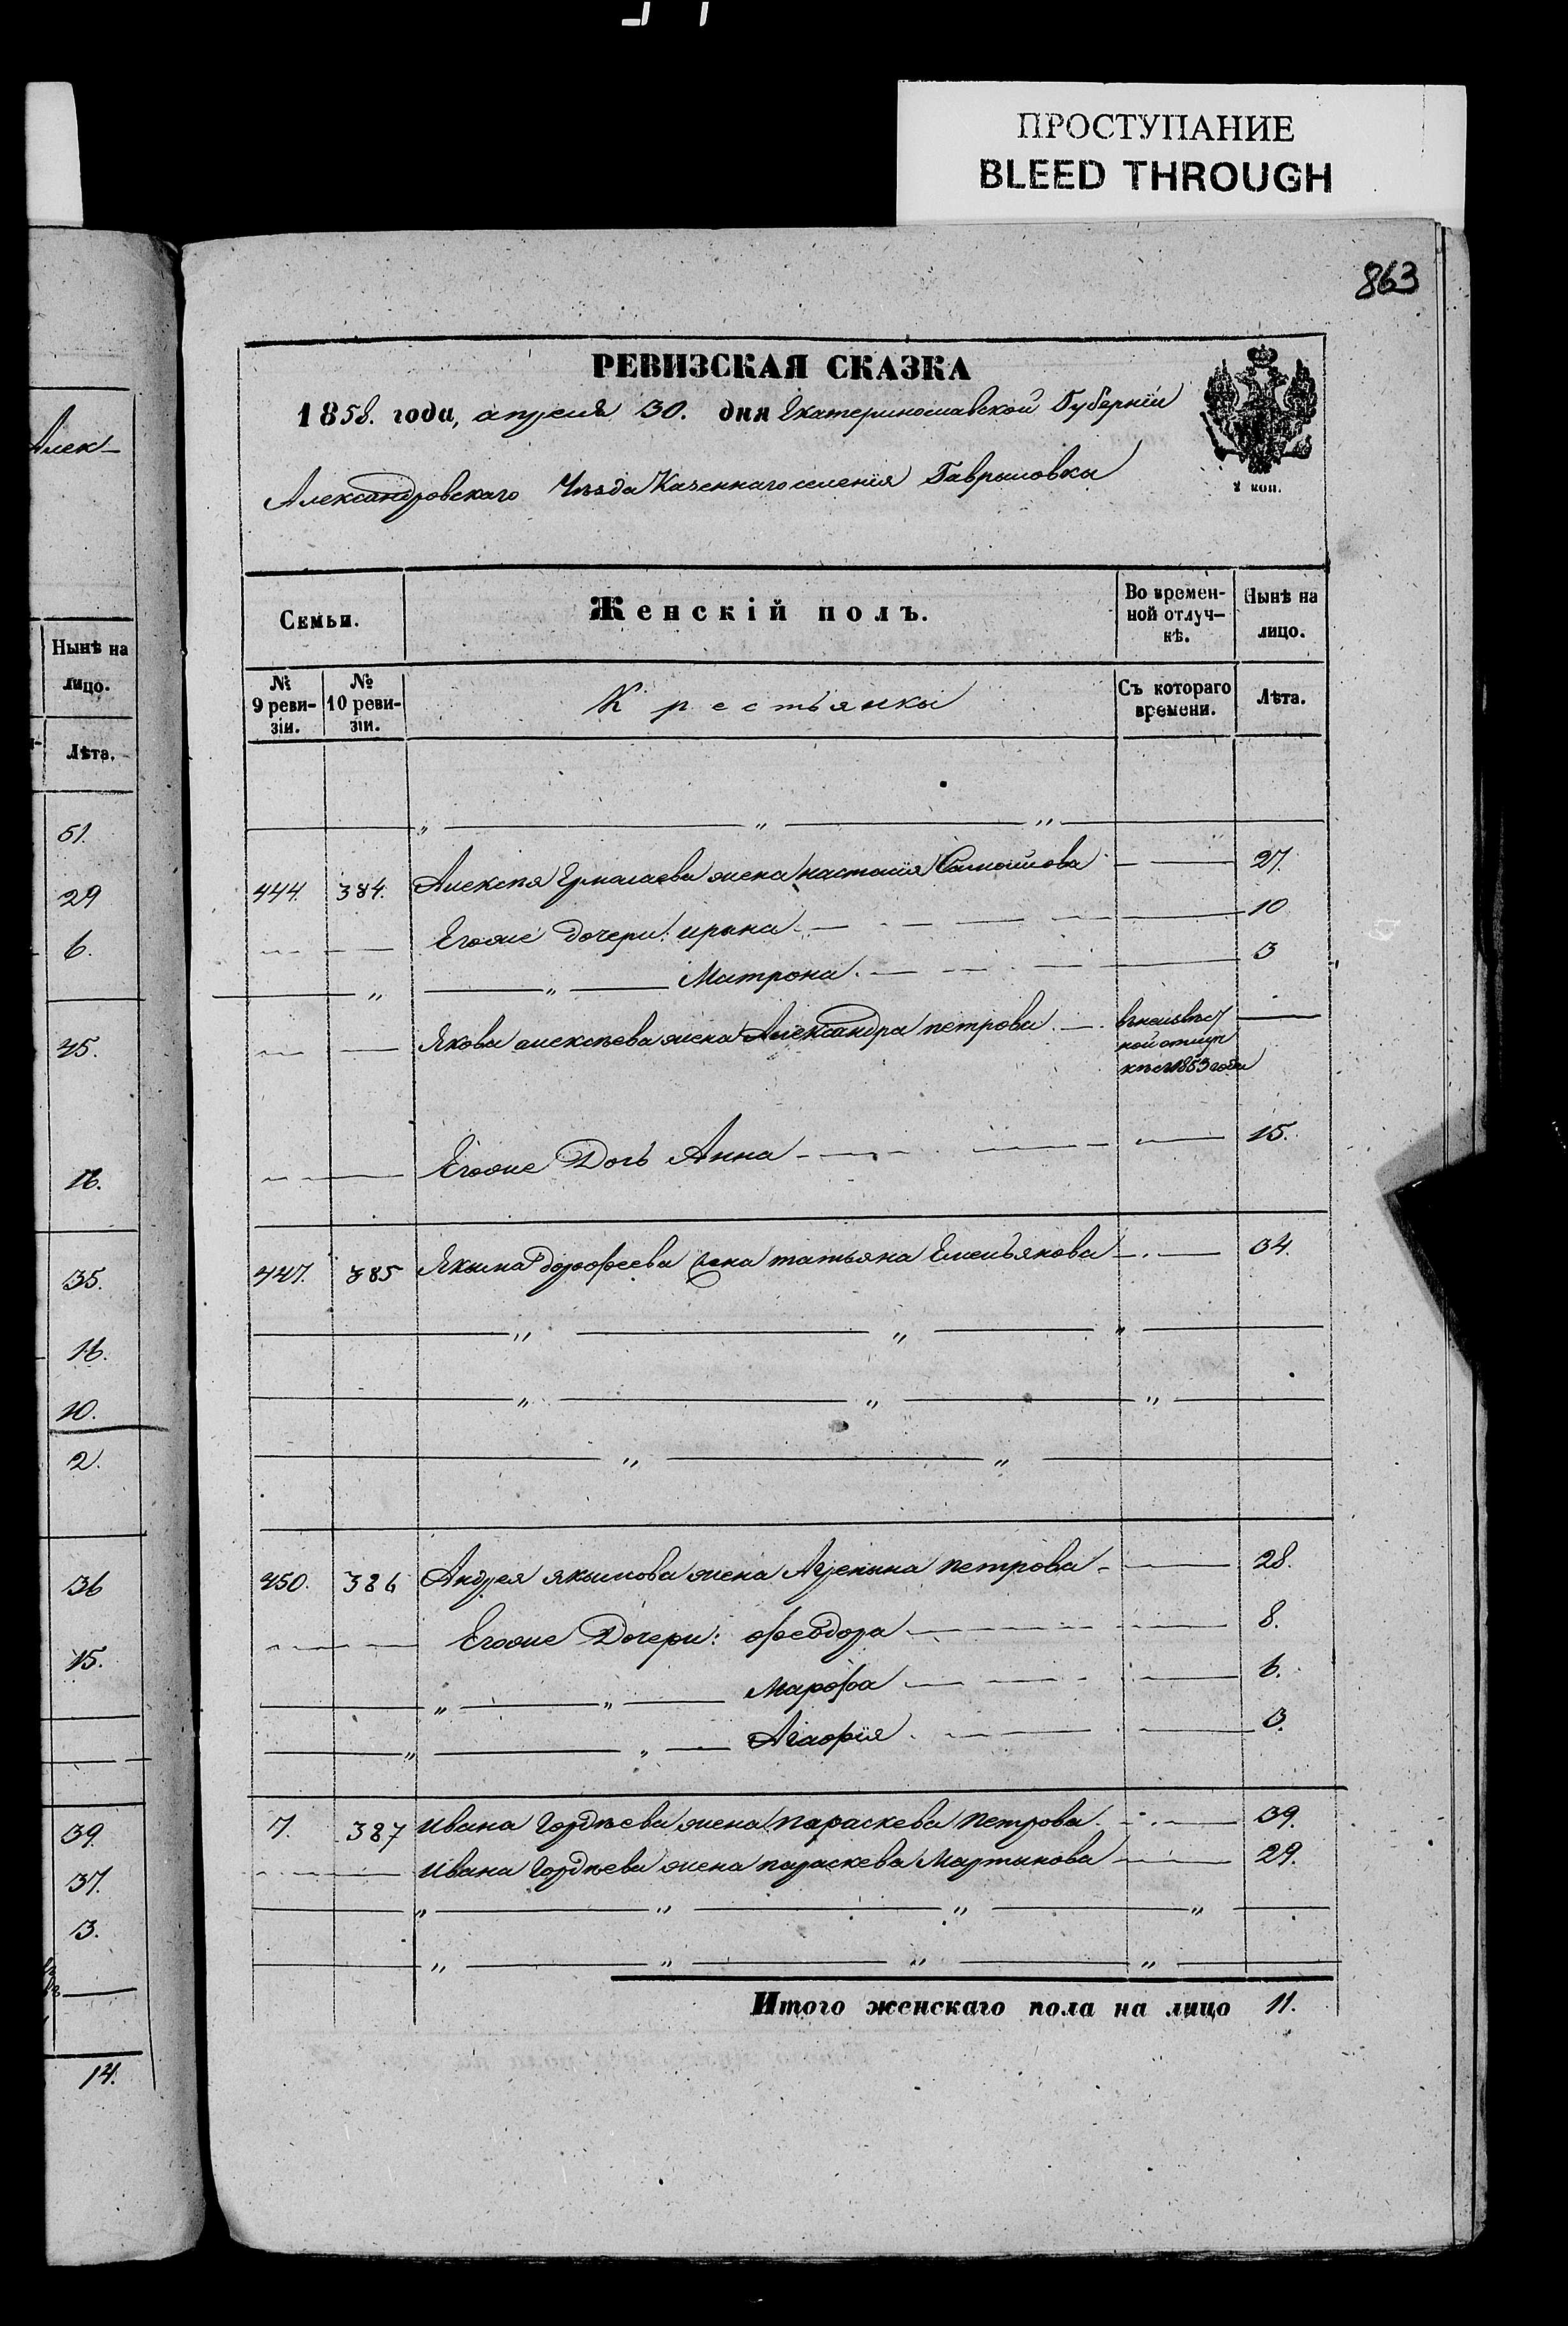 ПРОСТУПАНИЕ
BLEED THROUGH
863
Алек-
Нынѣ на
лицо.
Лѣта.
51.
29
6.
45.
16.
35.
16.
10.
2.
36
15.
39.
37.
3.
14.
РЕВИЗСКАЯ СКАЗКА
1858. года, апреля 30. дня Екатеринославской Губерніи
Александровскаго Уѣзда Казеннаго селенія Гаврыловкы
2 коп.
Семьи.
Женскій полъ.
Во времен-
ной отлуч-
кѣ.
Нынѣ на
лицо.
№
9 реви-
зіи.
№
10 реви-
зіи.
Крестьянкы
Съ котораго
времени.
Лѣта.
444. 384. Алексѣя Ермолаева жена настасія Самойлова 27.
Егоже дочери: ирына 10
Матрона. 3
Якова алексѣева жена Александра петрова въ неизвѣст
ной отлуч
кѣ съ 1853 года
Егоже Дочь Анна 15.
447. 385 Якыма дорофеева жена татьяна Емельянова 34.
450. 386 Андрея якымова жена Агрепына петрова 28.
Егоже Дочери: феодора 8.
Марфа 6.
Агафія 3.
7. 387 Ивана Гордѣева жена параскева петрова. 39.
Ивана Гордѣева жена параскева Мартынова 29.
Итого женскаго пола на лицо 11.